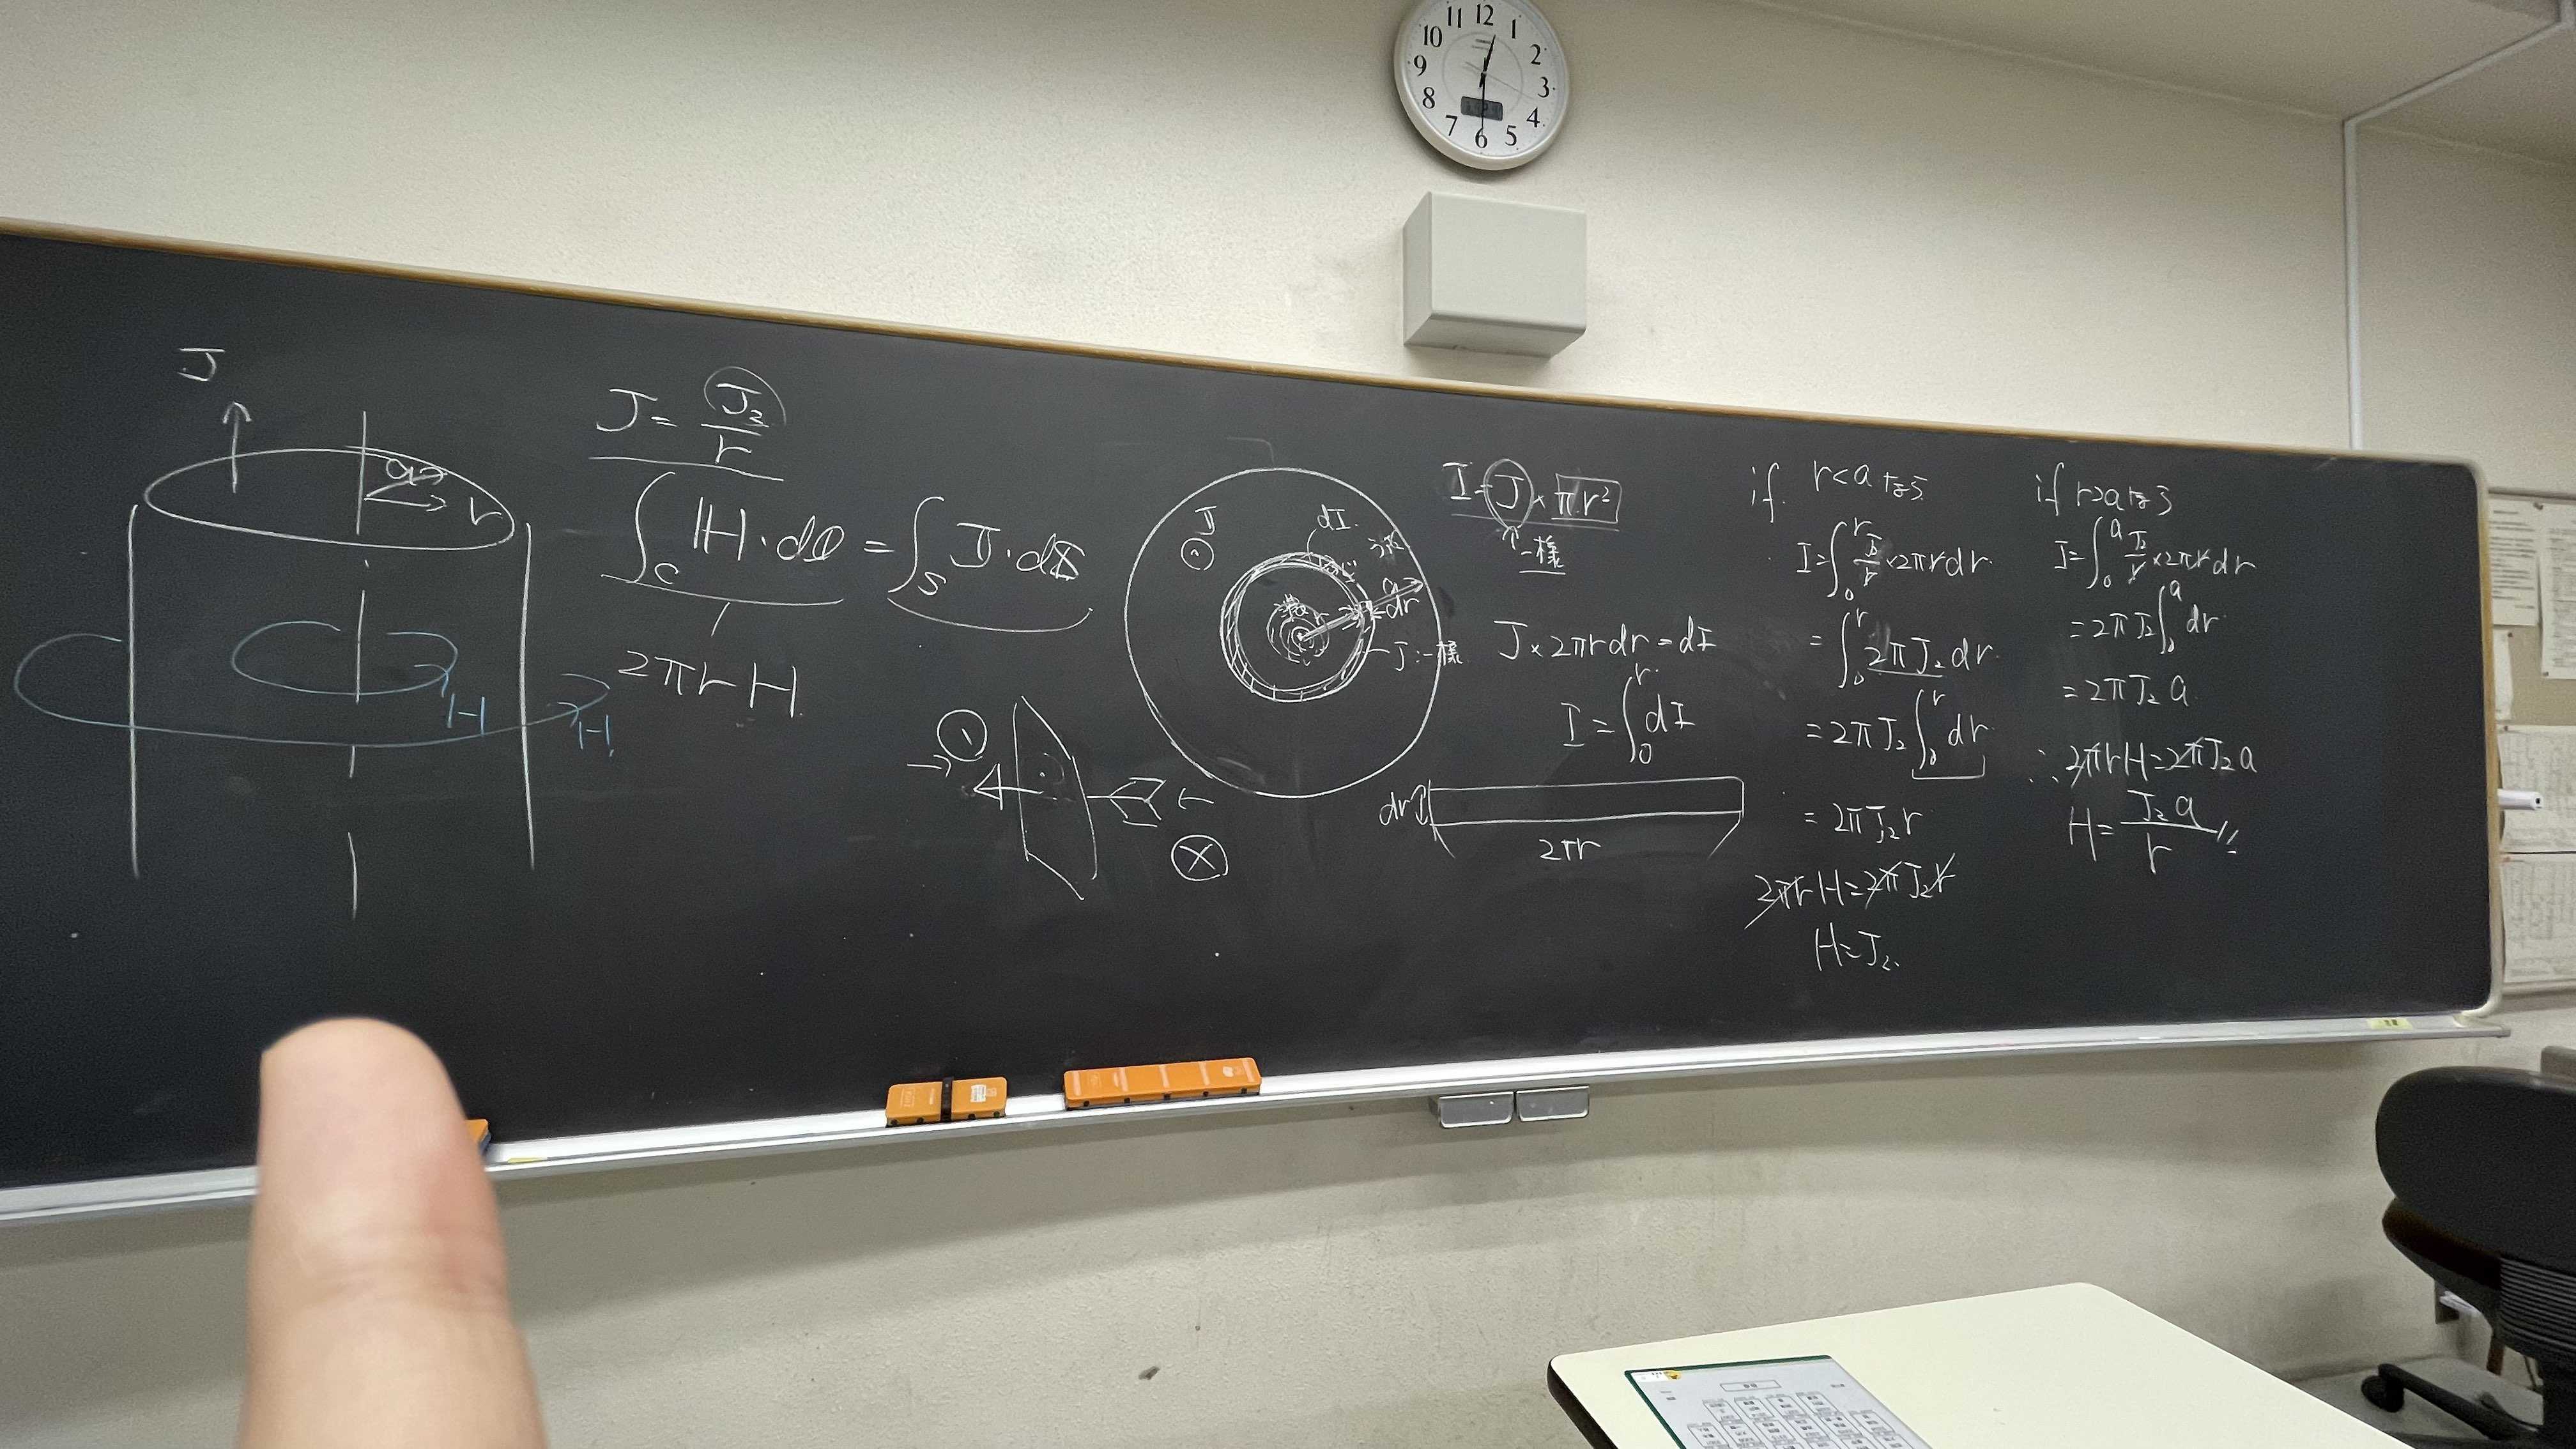 11 12 1
10 2
9 3
8 4
7 6 5
J
a
r
H
H
J = J₂/r
∫c H・dl = ∫s J・dS
2πrH
J
dI
a
dr
J:一様
I = J × πr²
↑一様
J × 2πrdr = dI
I = ∫₀ʳ dI
dr
2πr
if r<aなら
I = ∫₀ʳ J₂/r × 2πrdr
= ∫₀ʳ 2πJ₂dr
= 2πJ₂∫₀ʳ dr
= 2πJ₂r
2πrH = 2πJ₂r
H = J₂
if r>aなら
I = ∫₀ᵃ J₂/r × 2πrdr
= 2πJ₂∫₀ᵃ dr
= 2πJ₂a
∴ 2πrH = 2πJ₂a
H = J₂a/r